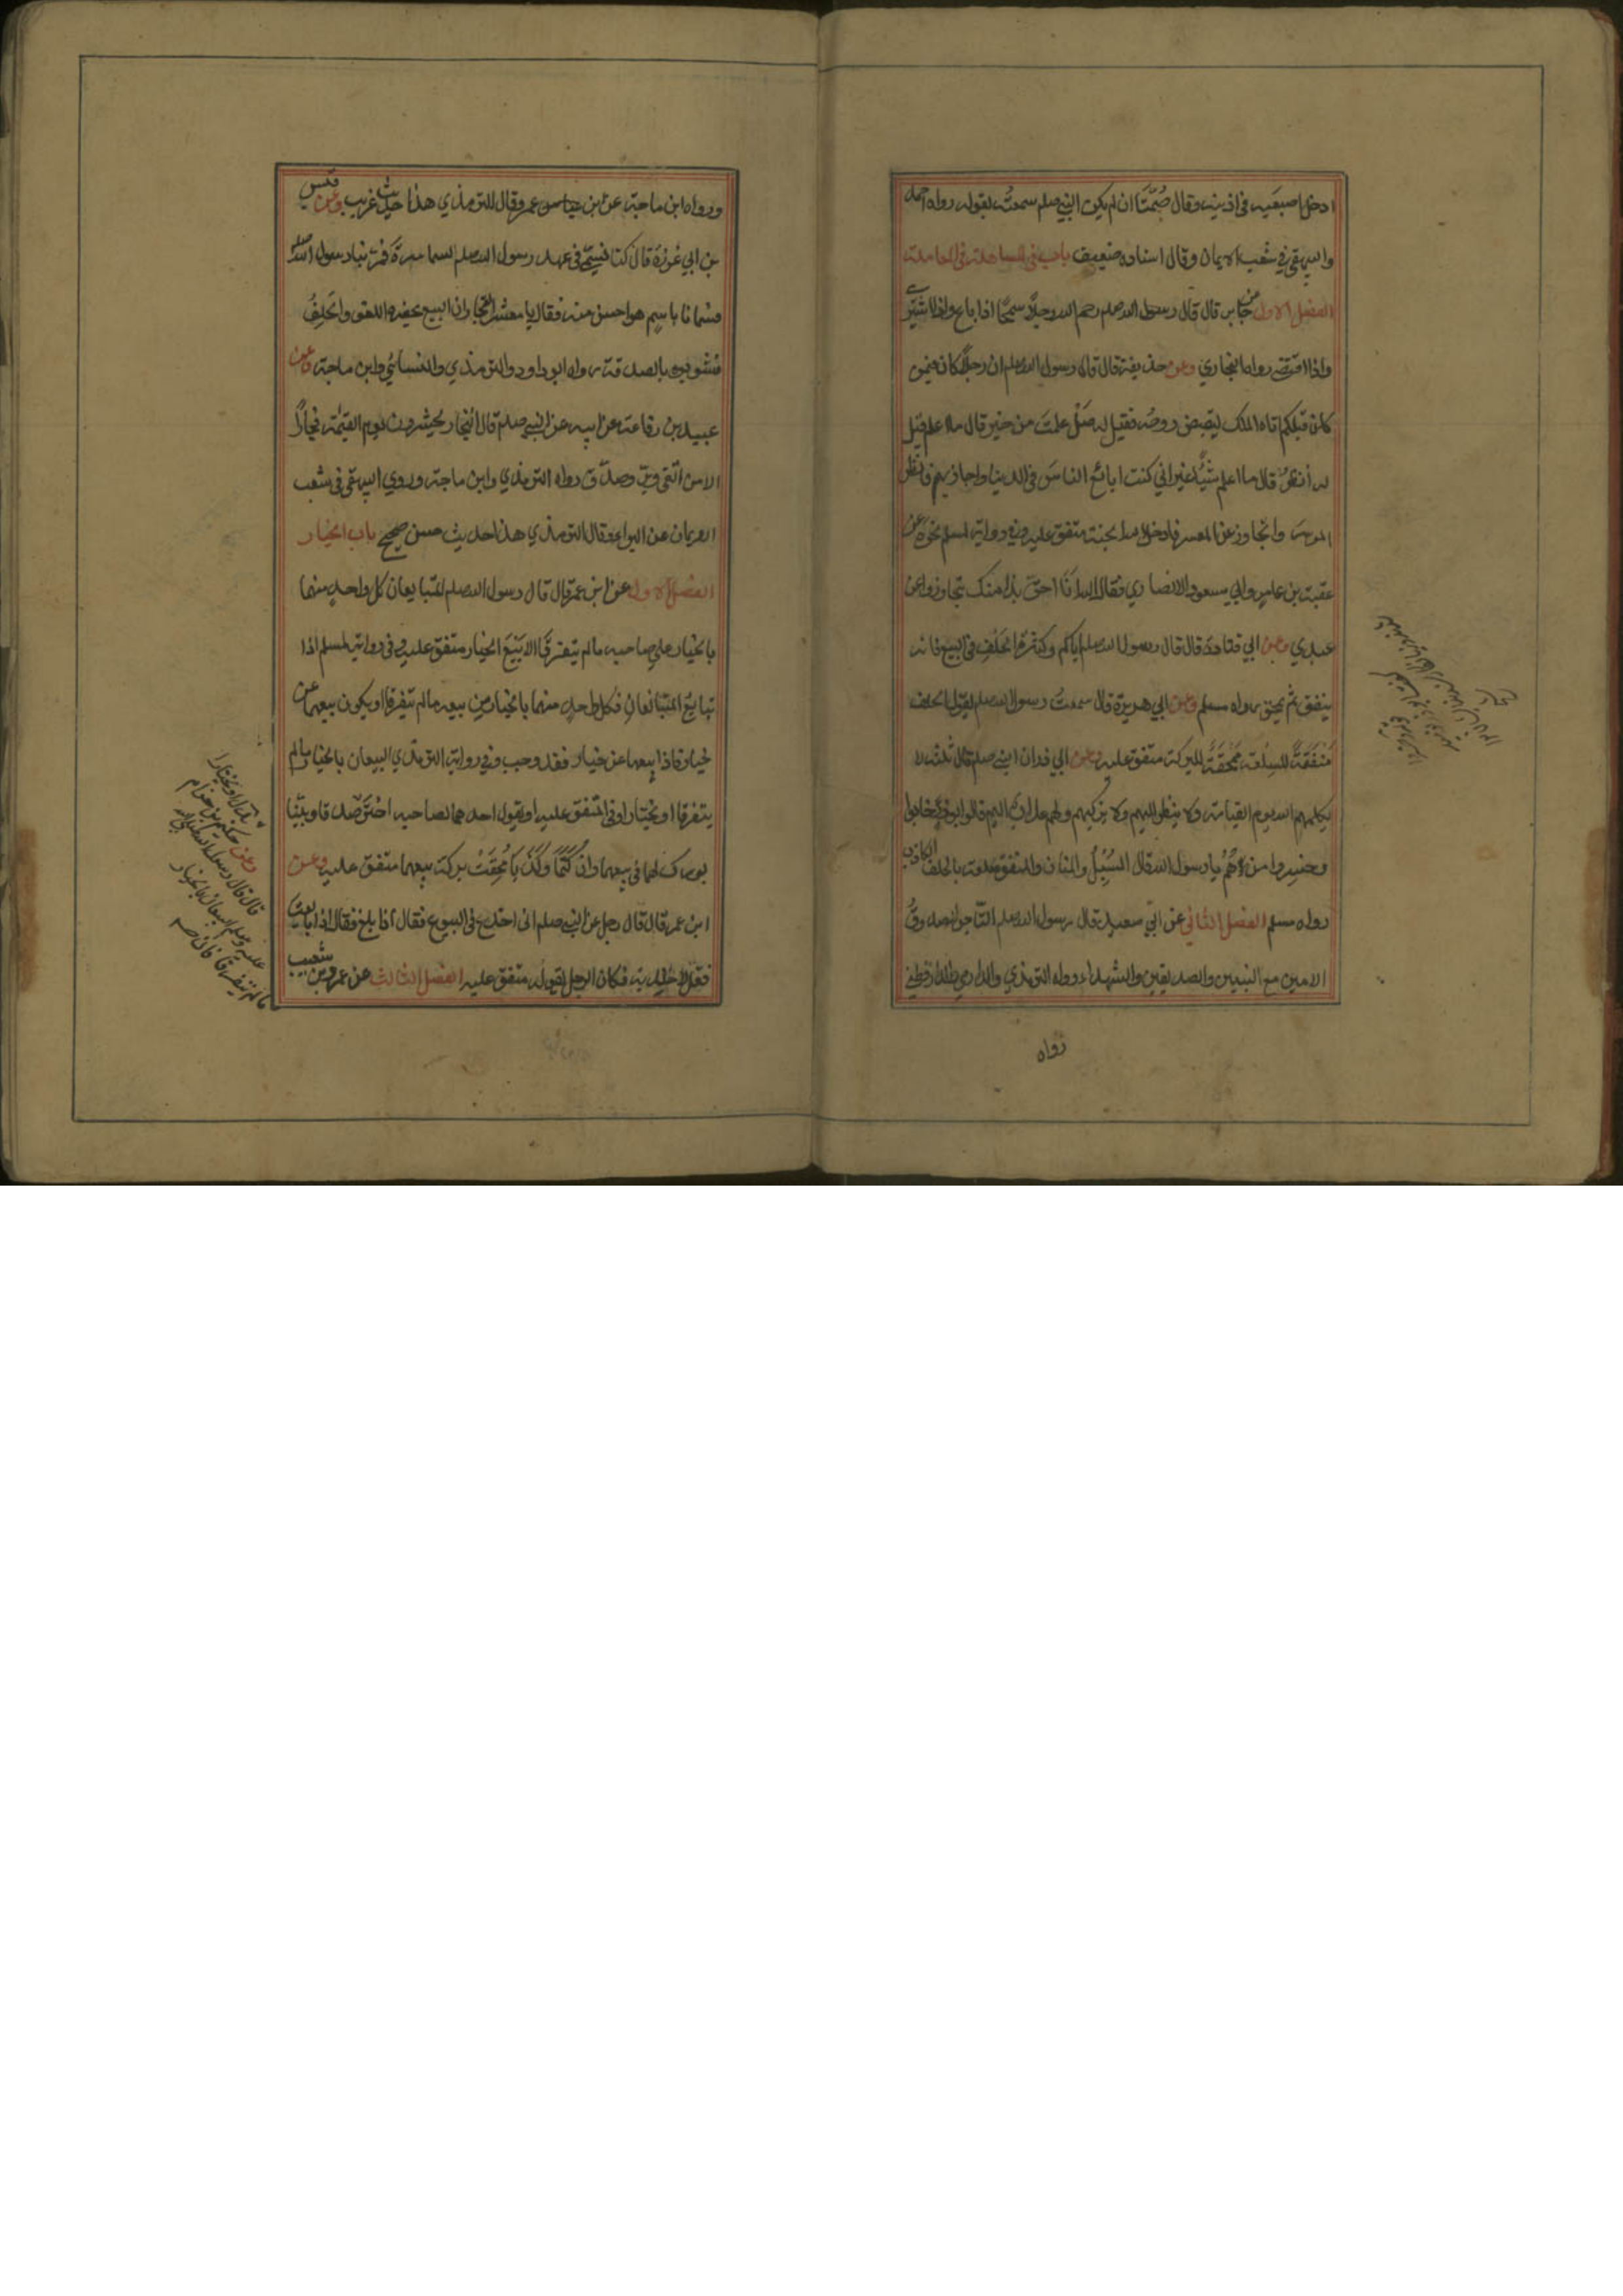 ادخل اصبعيه في اذنيه وقال صُمَّتَا ان لم يكن النبي صلم سمعتُه يقوله رواه احمد
والبيهقي في شعب الايمان وقال اسناده ضعيف باب في المساهلة في المعاملة
الفصل الاول عن جابر قال قال رسول الله صلم رحم الله رجلاً سمحًا اذا باع واذا اشترى
واذا اقتضى رواه البخاري وعن حذيفة قال قال رسول الله صلم ان رجلًا كان فيمن
كان قبلكم اتاه الملك ليقبض روحه فقيل له هَلْ علمتَ من خير قال ما اعلم قيل
له أنظر قال ما اعلم شيئًا غير اني كنت ابائع الناسَ في الدنيا واجازيهم فانظر
الموسر واتجاوز عن المعسر فادخله الله الجنة متفق عليه وفي رواية لمسلم نحوه عن
عقبة بن عامر وابي مسعود الانصاري فقال الله اَنَا احق بذا منك تجاوزوا عن
عبدي وعن ابي قتادة قال قال رسول الله صلم اياكم وكثرة الحَلْفِ في البيع فانه
ينفق ثم يمحق رواه مسلم وعن ابي هريرة قال سمعتُ رسول الله صلم يقول الحلف
مَنْفَقَةٌ للسِلْعَة مَمْحَقَةٌ للبركة متفق عليه وعن ابي ذر عن النبي صلم قال ثلثة لا
يكلمهم الله يوم القيامة ولا ينظر اليهم ولا يزكيهم ولهم عذاب اليم قال ابو ذر خابوا
وخسروا من هُمْ يا رسول الله قال المسبل والمنان والمنفق سلعته بالحلف الكاذب
رواه مسلم الفصل الثاني عن ابي سعيد قال رسول الله صلم التاجر الصدوقُ
الامين مع النبيين والصديقين والشهداء رواه الترمذي والدارمي والدارقطني
رواه
ورواه ابن ماجة عن ابن عمر وقال الترمذي هذا حديث غريب وعن قيس
بن ابي غرزة قال كنا نسمّى في عهد رسول الله صلم السماسرة فمر بنا رسول الله صلم
فسمانا باسم هو احسن منه فقال يا معشر التجار ان البيع يحضره اللغو والحَلِفُ
فشوبوه بالصدقة رواه ابو داود والترمذي والنسائي وابن ماجة وعن
عبيد بن رفاعة عن ابيه عن النبي صلم قال التجار يحشرون يوم القيمة فجارًا
الا من اتقى وبرّ وصدق رواه الترمذي وابن ماجة وروى البيهقي في شعب
الايمان عن البراء وقال الترمذي هذا حديث حسن صحيح باب الخيار
الفصل الاول عن ابن عمر قال قال رسول الله صلم المتبايعان كل واحدٍ منهما
بالخيار على صاحبه ما لم يتفرقَا الا بَيْعَ الخيار متفق عليه وفي رواية لمسلم اذا
تبايَعَ المتبايعانِ فكل واحدٍ منهما بالخيار من بيعه ما لم يتفرقا او يكون بيعهما عن
خيار فاذا بيعهما عن خيار فقد وجب وفي رواية الترمذي البيعان بالخيار ما لم
يتفرقا او يختارا وفي المتفق عليه او يقول احدهما لصاحبه اختر صدقا وبيّنا
بورك لهما في بيعهما وان كَتَمَا وكَذَبَا مُحِقَتْ بركة بيعهما متفق عليه وعن
ابن عمر قال قال رجل عن النبي صلم اني اخدع في البيوع فقال اذا بايعت
فقل لا خلابة فكان الرجل يقوله متفق عليه الفصل الثالث عن عمرو بن شعيب
بدل او يختارا
وعن حكيم بن حزام
قال قال رسول الله صلى الله
عليه وسلم البيعان بالخيار
ما لم يتفرقا فان صد